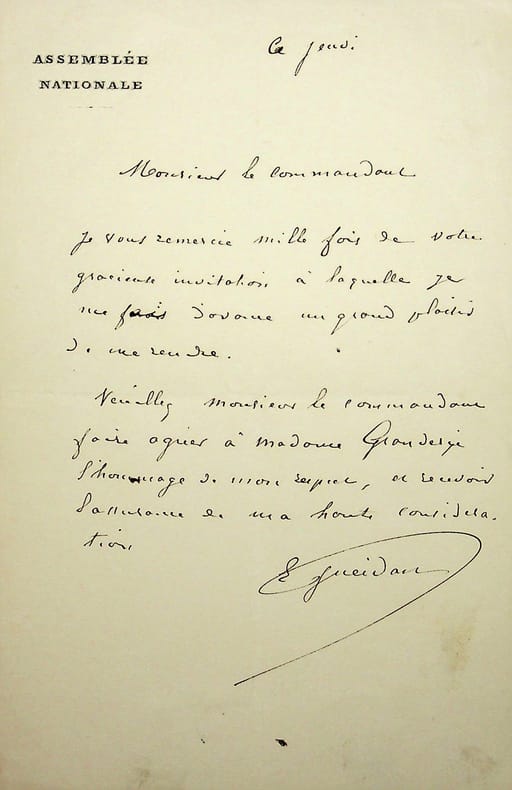 ASSEMBLÉE
NATIONALE
Ce jeudi
Monsieur le commandant
Je vous remercie mille fois de votre
gracieuse invitation à laquelle je
me fais d'avance un grand plaisir
de me rendre.
Veuillez monsieur le commandant
faire agréer à madame
l'hommage de mon respect, et recevoir
l'assurance de ma haute considéra-
tion
E Gueidan